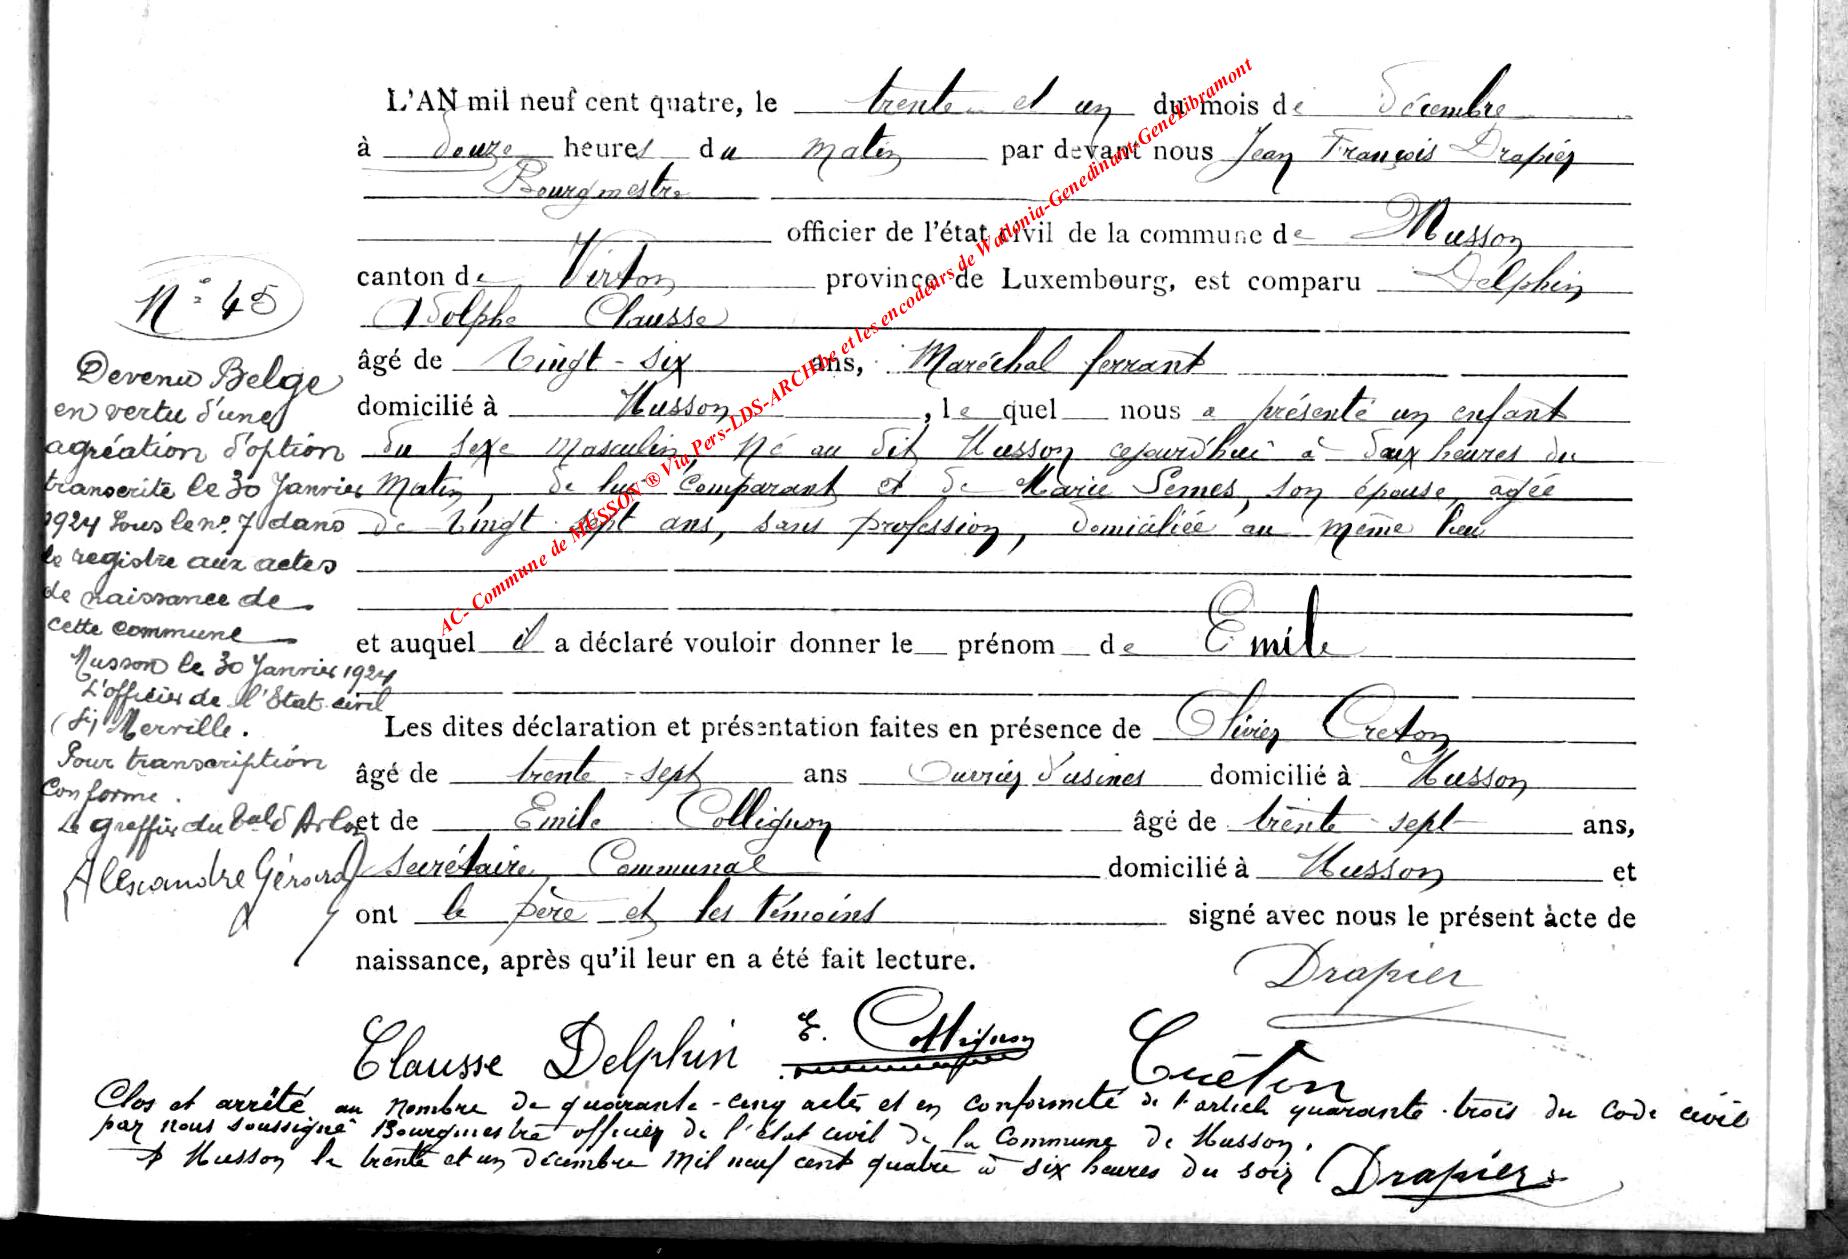 L'AN mil neuf cent quatre, le trente et un du mois de décembre
à douze heures du matin par devant nous Jean François Drapier
Bourgmestre
officier de l'état civil de la commune de Musson
canton de Virton province de Luxembourg, est comparu Delphin
Adolphe Clausse
âgé de vingt-six ans, Maréchal ferrant
domicilié à Musson, lequel nous a présenté un enfant
du sexe masculin, né au dit Musson cejourd'hui à deux heures du
matin, de lui comparant et de Marie Semes, son épouse, âgée
de vingt sept ans, sans profession, domiciliée au même lieu
et auquel il a déclaré vouloir donner le prénom de Emile
Les dites déclaration et présentation faites en présence de Olivier Creton
âgé de trente-sept ans Ouvrier d'usines domicilié à Musson
et de Emile Collignon âgé de trente-sept ans,
secrétaire Communal domicilié à Musson et
ont le père et les témoins signé avec nous le présent acte de
naissance, après qu'il leur en a été fait lecture.
Drapier
Clausse Delphin E. Collignon Créton
Clos et arrêté au nombre de quarante-cinq actes et en conformité de l'article quarante-trois du code civil
par nous soussigné Bourgmestre officier de l'état civil de la Commune de Musson.
A Musson le trente et un décembre mil neuf cent quatre à six heures du soir Drapier
N° 45
Devenu Belge
en vertu d'une
agréation d'option
transcrite le 30 Janvier
1924 sous le n° 7 dans
le registre aux actes
de naissance de
cette commune
Musson le 30 Janvier 1924
L'officier de l'Etat civil
(s) Merville.
Pour transcription
conforme.
Le greffier du bal d'Arlon
Alexandre Gérard
AC- Commune de MUSSON ® Via Pers-LDS-ARCHbe et les encodeurs de Wallonia-Genedinant-GeneLibramont